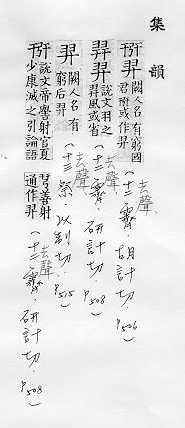 集韻
羿
闕人名有窮國
君𢏗或作羿
(去聲十二霽．胡計切．P506)
羿
說文羽之
羿風或省
(去聲十二霽．研計切．P508)
羿
闕人名有
窮后羿
(去聲十三祭．以制切．P515)
𢏗
說文帝嚳射官夏
少康滅之引論語
𢏗善射
通作羿
(去聲十二霽．研計切．P508)